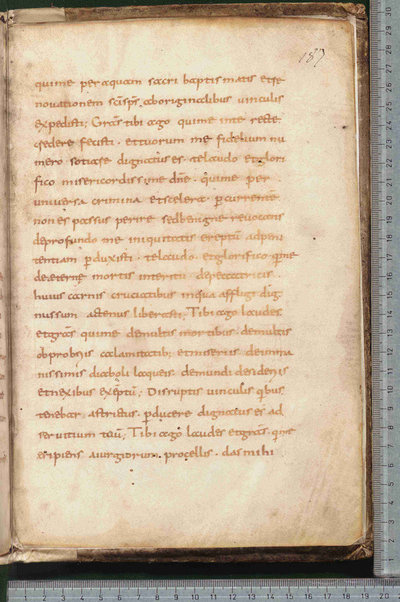 187
quime per aquam sacri baptismatis et re
novationem sc̄i sp̄s aboriginalibus vinculis
expedisti; Gras̄ tibi ago quime inte recte
credere fecisti · ettuorum me fidelium nu
mero sociare dignatus es · te laudo et glori
fico misericordissime dn̄e · quime per
universa crimina etscelera pcurrentē
non es passus perire sed benigne revocans
deprofundo me iniquitatis ereptū adpeni
tentiam pduxisti · telaudo · etglorifico qme
de aeternę mortis interitu de peccatricis
huius carnis cruciatibus inqua afflugi dig
nissum actenus liberasti; Tibi ago laudes
etgras̄ quime demultis mortibus · demultis
obprobriis calamitatib; etmiseriis · deinma
nissimis diaboli laqueis demundi desideriis
etnexibus exēptū; Disruptis vinculis qbus
tenebar astrictus · pducere dignatus es ad
servitium tuū; Tibi ago laudes etgras̄ · qme
eripiens aiurgiorum procellis · das mihi